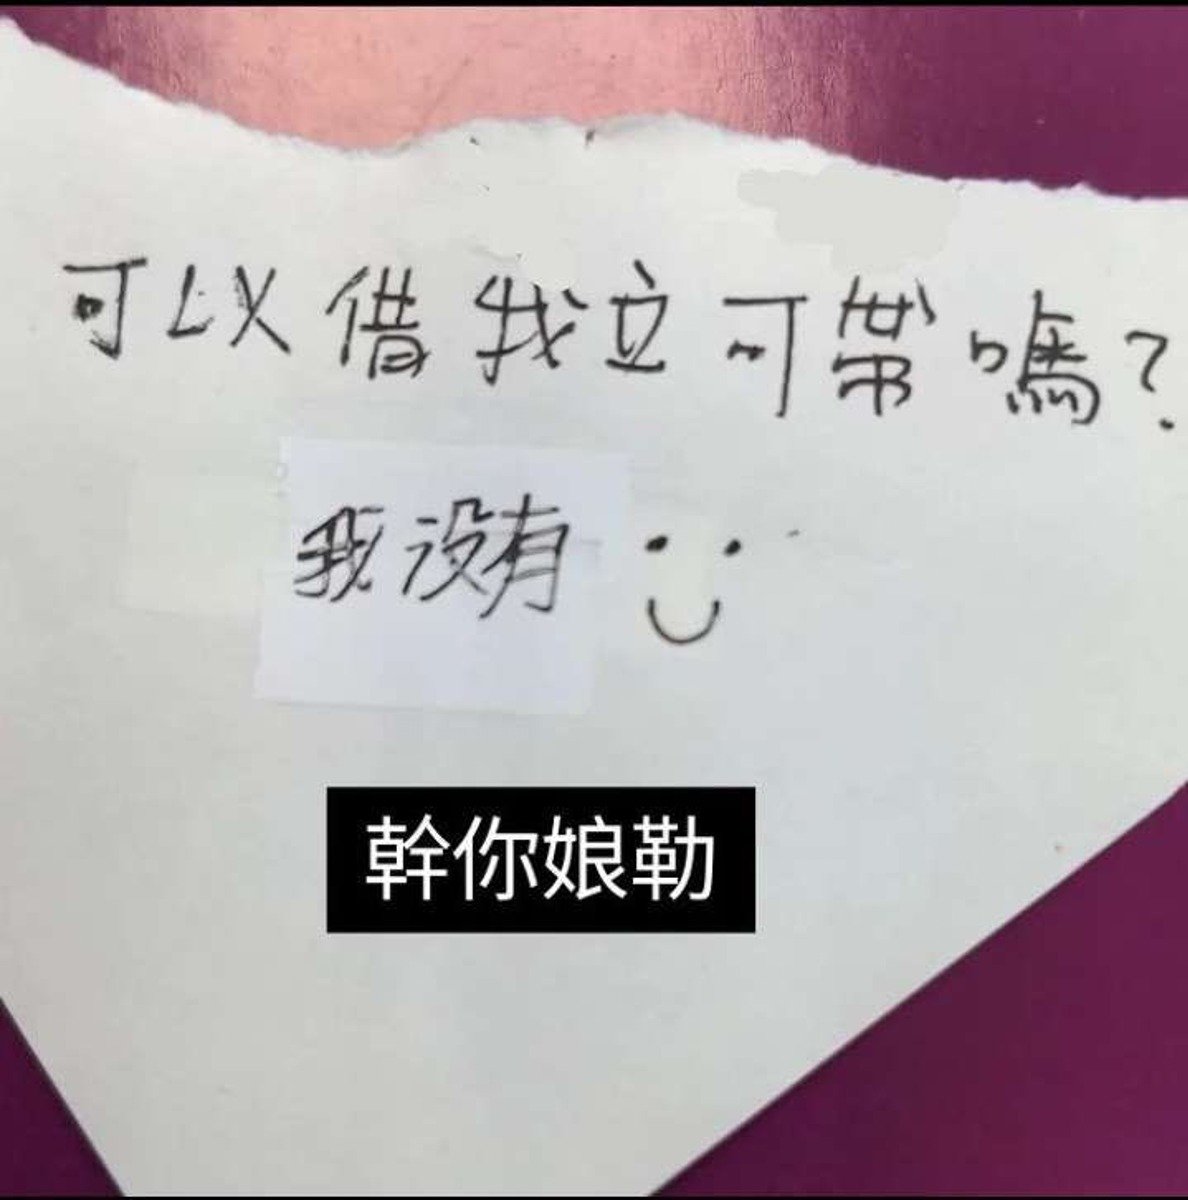 可以借我立可帶嗎?
我没有
幹你娘勒